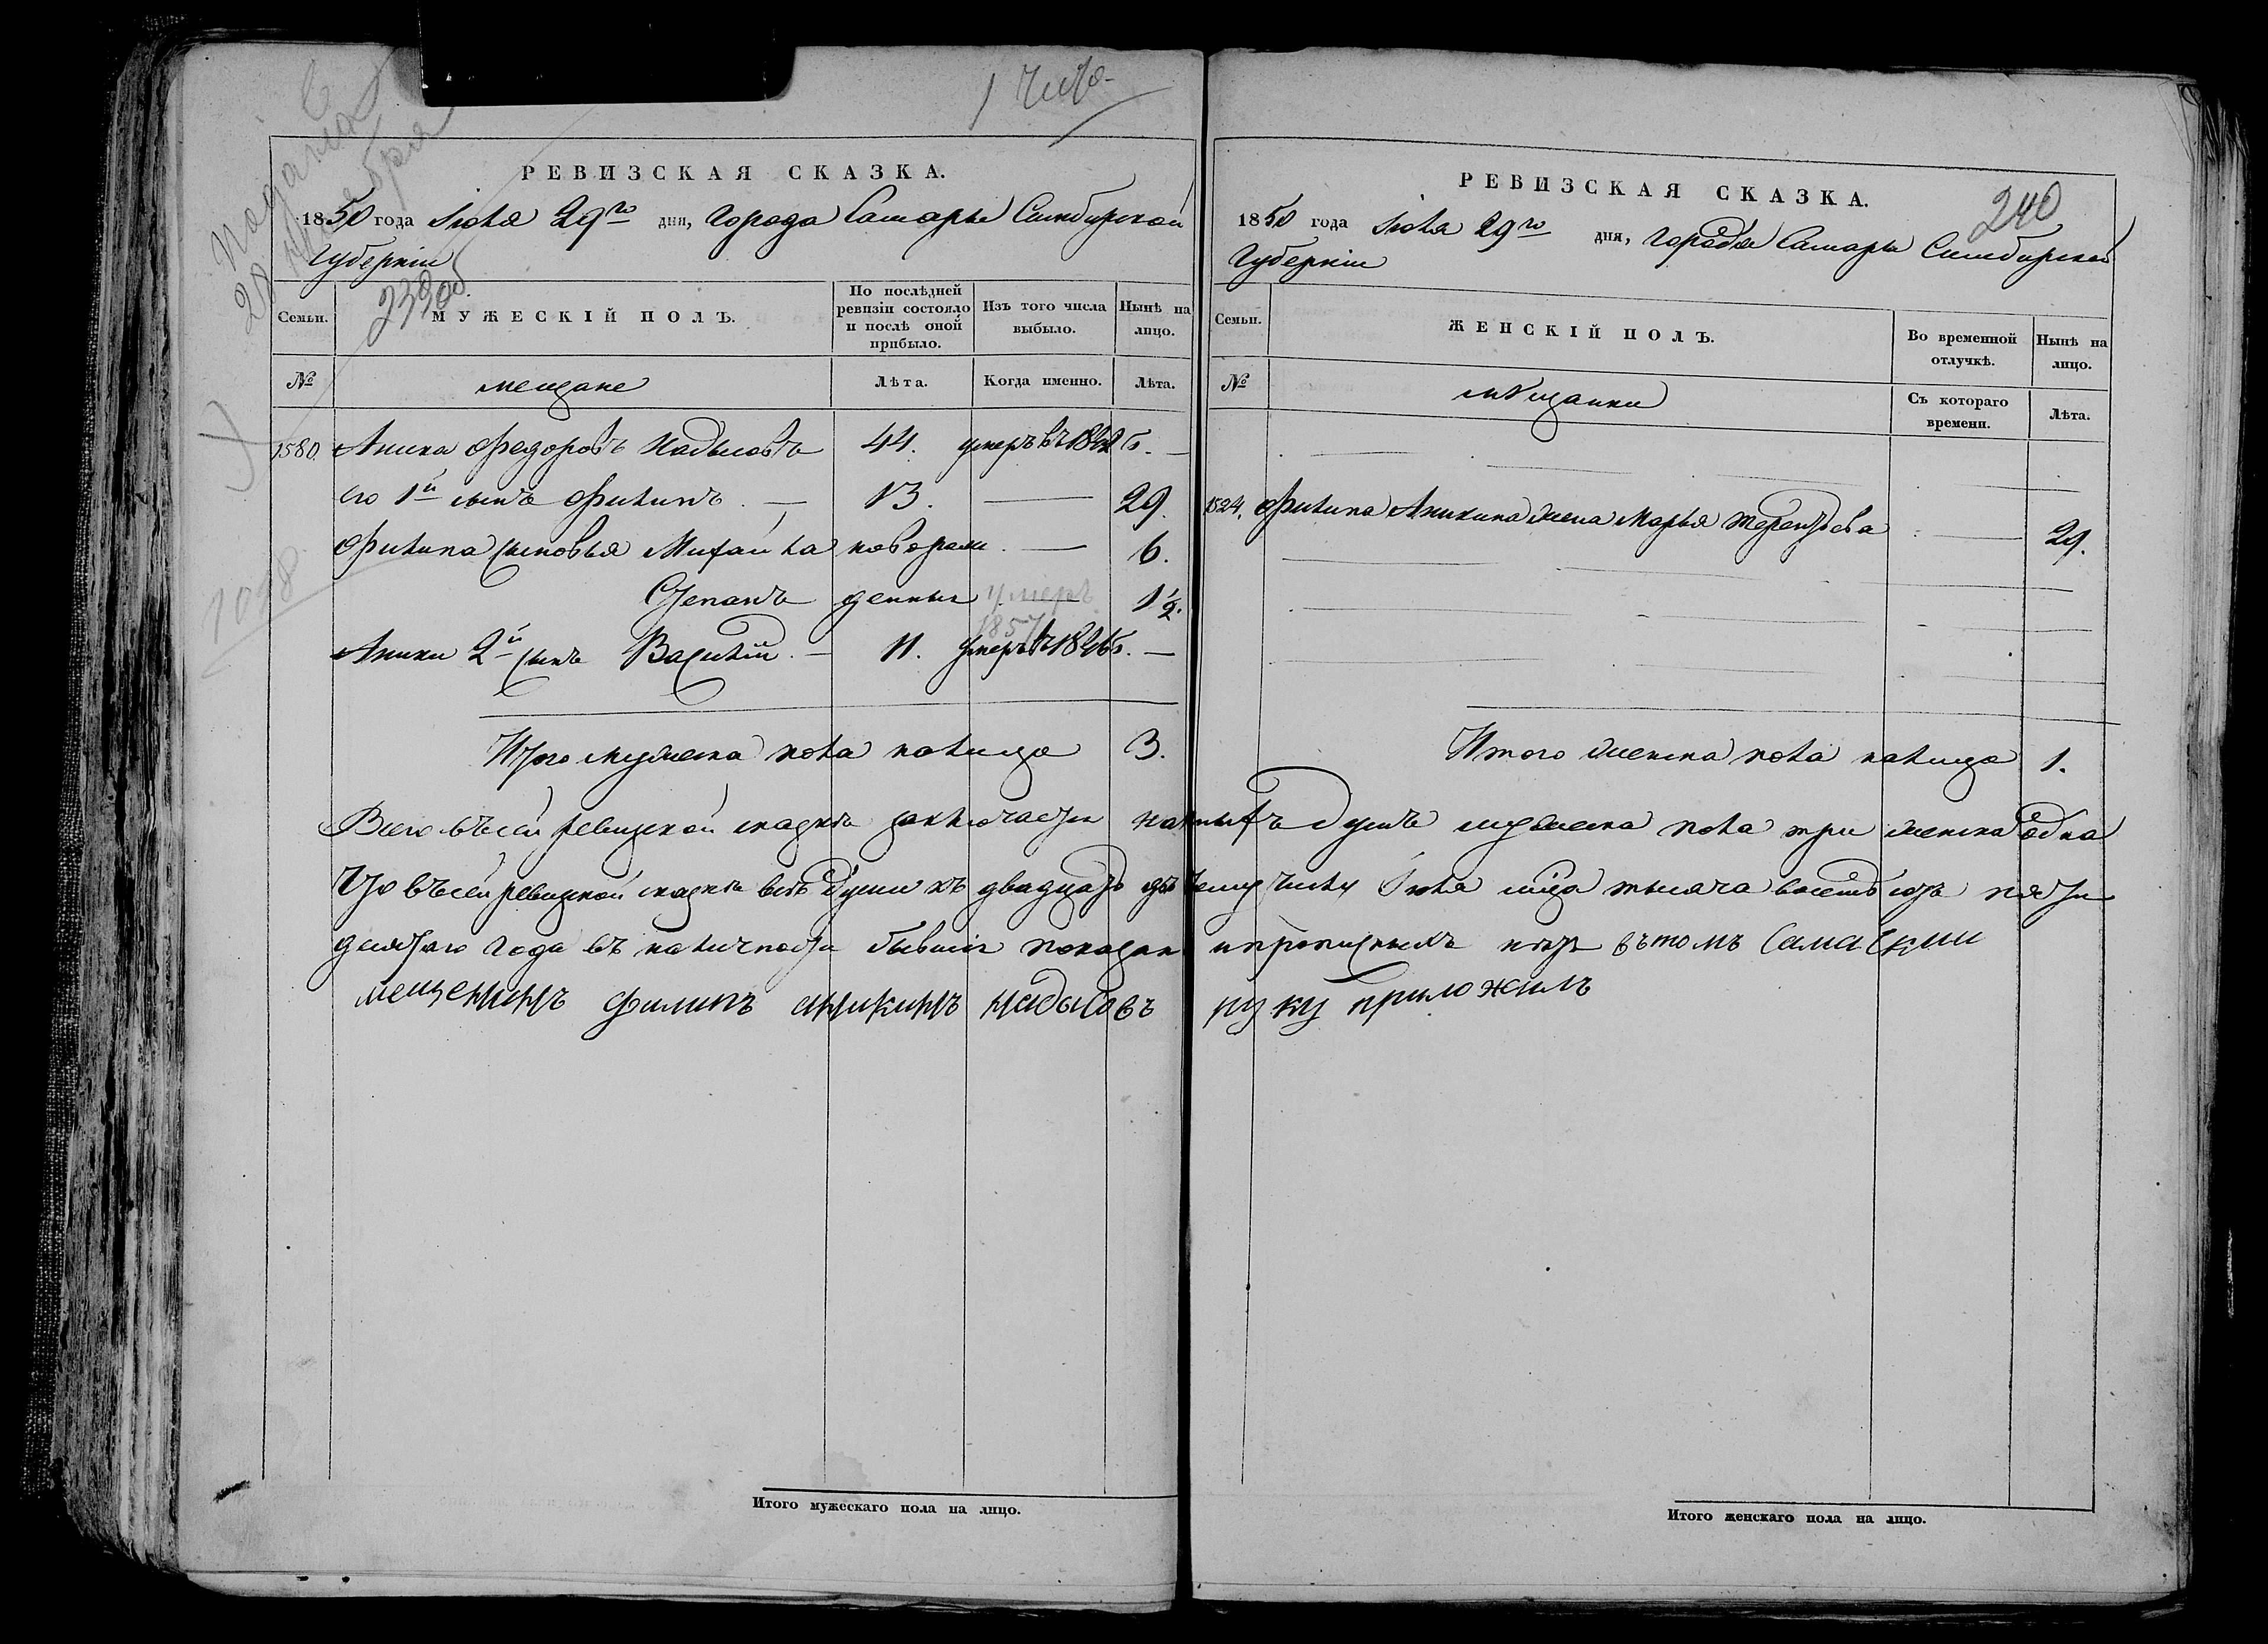 1 число
Подана
28 ноября
239 об
240
РЕВИЗСКАЯ СКАЗКА.
1850 года Июля 29го дня, города Самары Симбирской
губернiи
Семьи.
МУЖЕСКIЙ ПОЛЪ.
По послѣдней ревизiи состояло и послѣ оной прибыло.
Изъ того числа выбыло.
Нынѣ на лицо.
№
мещане
Лѣта.
Когда именно.
Лѣта.
1580. Аника Федоровъ Кадысовъ 44. умеръ въ 1842 г. —
его 1й сынъ Филипъ. — 13. — 29.
Филипа сыновья Михайла новорож — 6.
Степанъ денныя умеръ 1857 1½.
Аники 2й сынъ Василiй. — 11. умеръ въ 1846 г. —
Итого мужеска пола налицо 3.
РЕВИЗСКАЯ СКАЗКА.
1850 года Июля 29го дня, города Самары Симбирской
Губернiи
Семьи.
ЖЕНСКIЙ ПОЛЪ.
Во временной отлучкѣ.
Нынѣ на лицо.
№
мѣщанки
Съ котораго времени.
Лѣта.
1524. Филипа Аникина жена Марья Терентьева — 29.
Итого женска пола налицо 1.
Всего въ сей ревизской сказкѣ заключается наличныхъ душъ мужеска пола три женска одна
Что въ сей ревизской сказкѣ всѣ души къ двадцать девятому числу Июля мца тысяча восемь сотъ пятьи
десятаго года въ наличности бывшiя показаны и прописныхъ нетъ вътомъ Самаскии
мещенинъ филипъ аникинъ кадысовъ руку приложилъ
Итого мужескаго пола на лицо.
Итого женскаго пола на лицо.